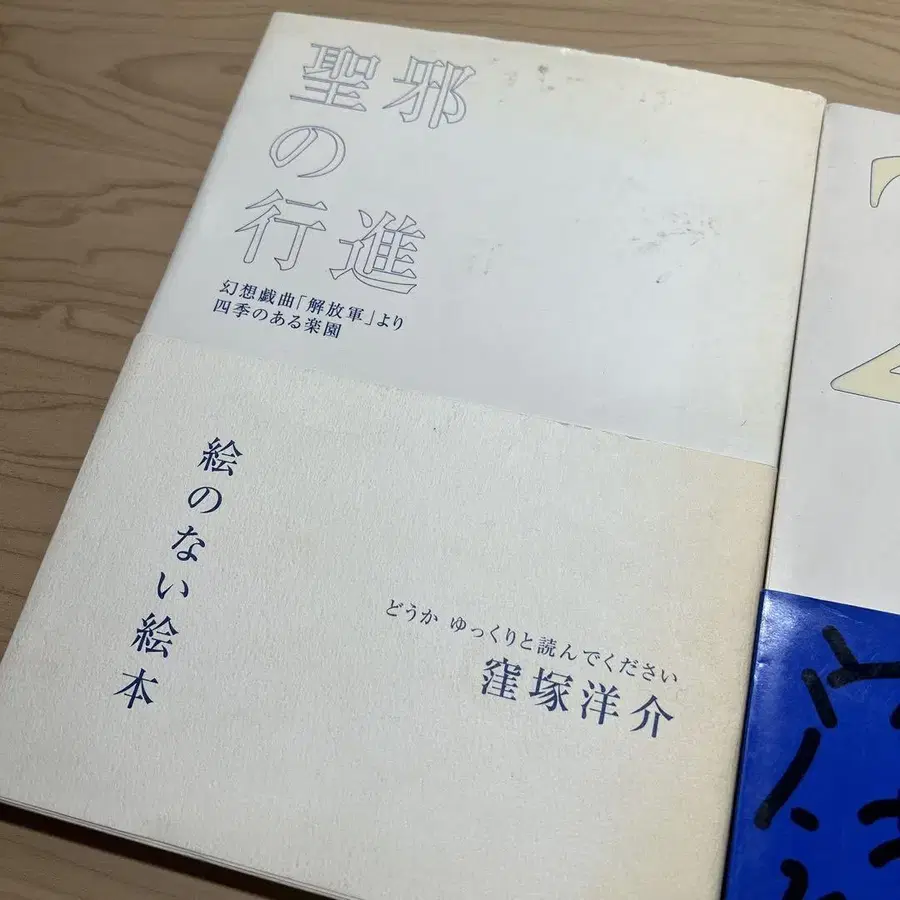 聖邪
の
行進
幻想戯曲「解放軍」より
四季のある楽園
絵のない絵本
どうか ゆっくりと読んでください
窪塚洋介
2